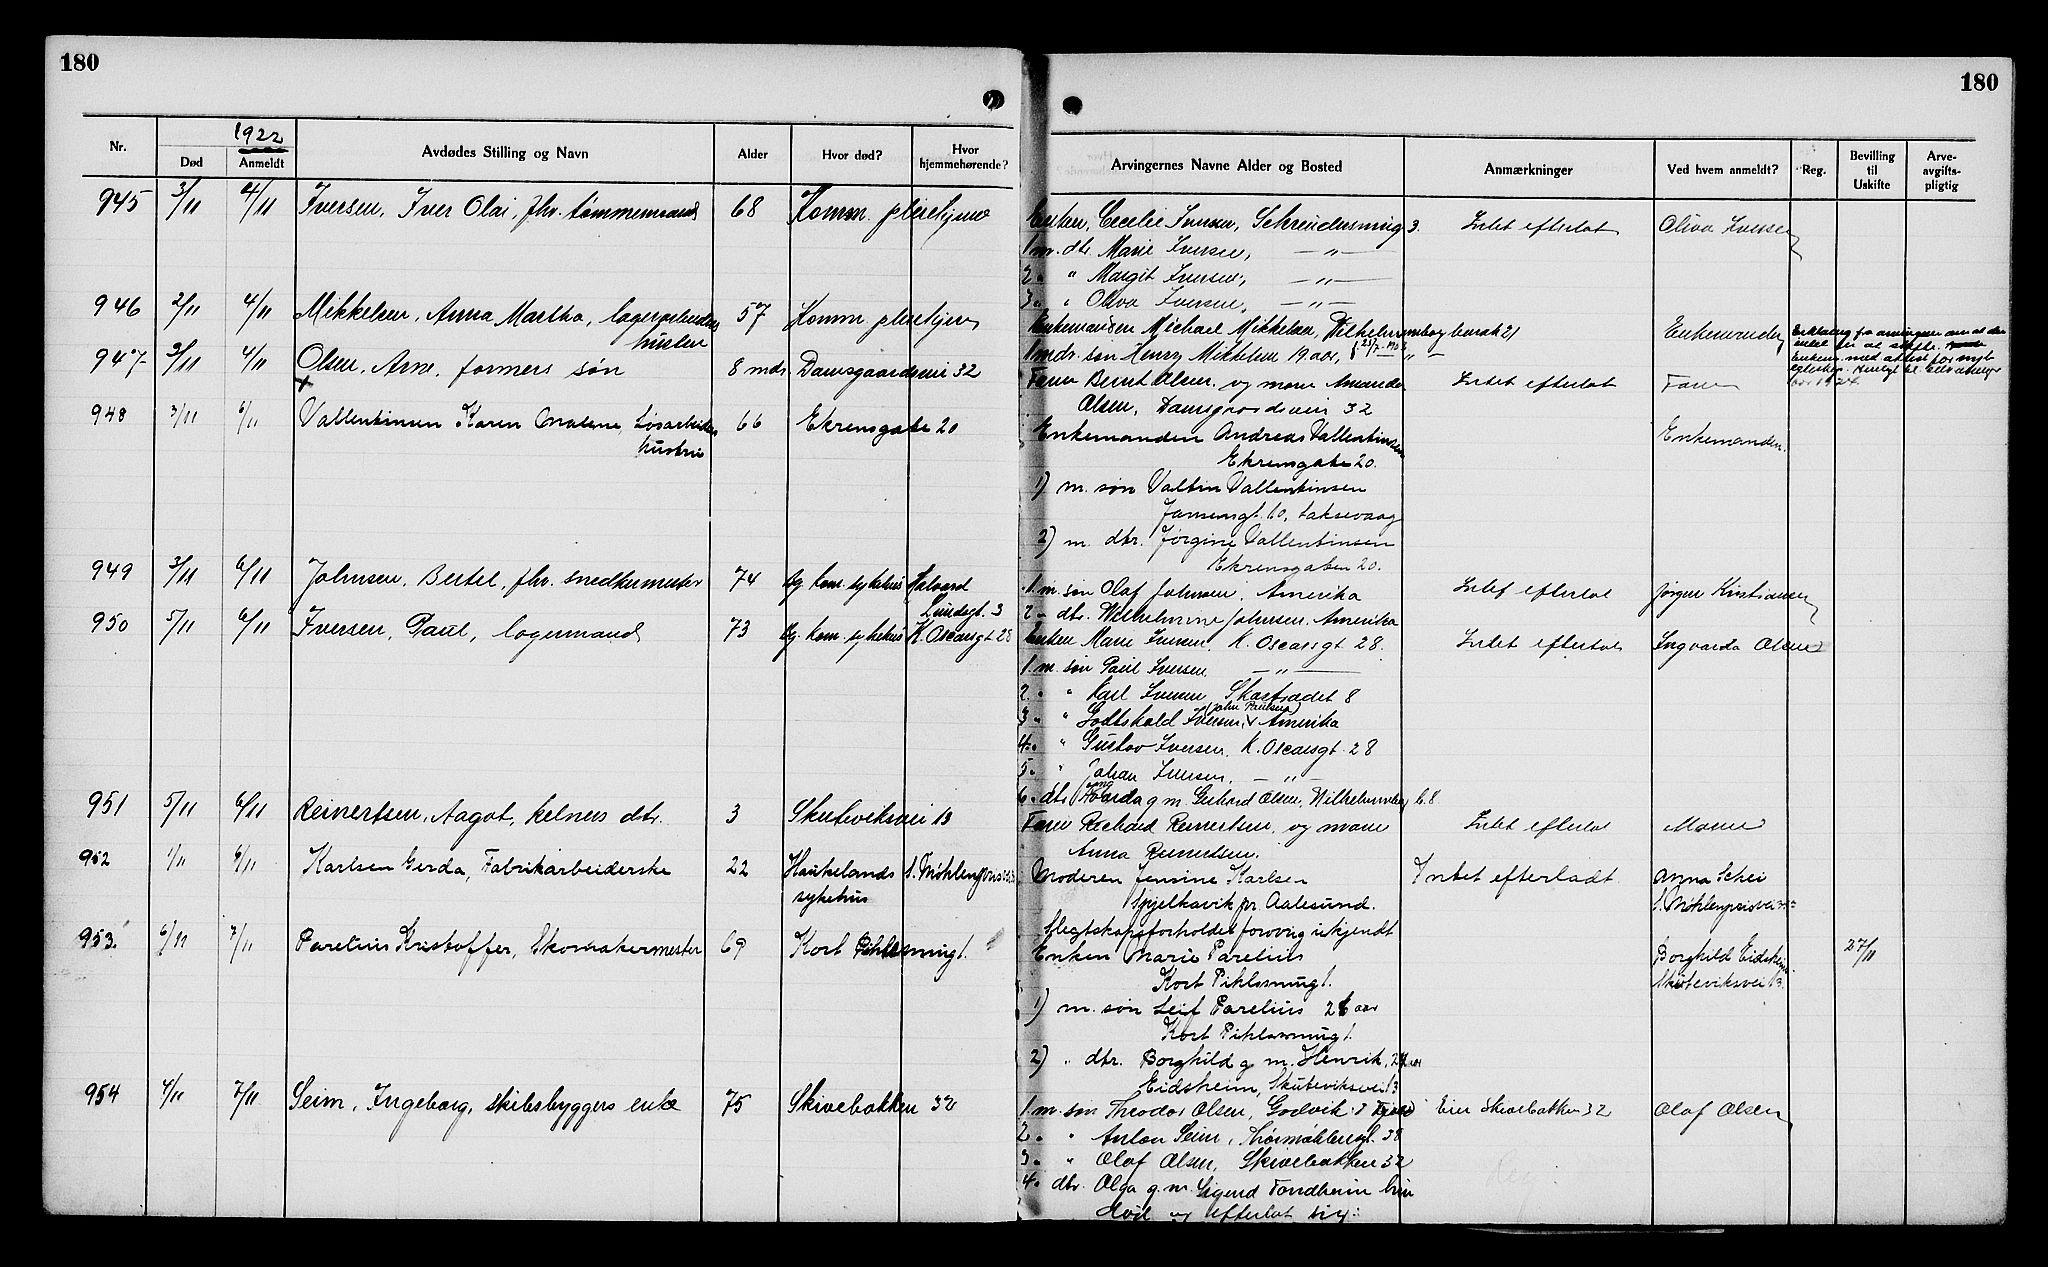 180
180
1922
Nr.
Død
Anmeldt
Avdødes Stilling og Navn
Alder
Hvor død?
Hvor hjemmehørende?
Arvingernes Navne Alder og Bosted
Anmærkninger
Ved hvem anmeldt?
Reg.
Bevilling til Uskifte
Arve-avgifts-pligtig
945 3/11 4/11 Iversen, Iver Olai, fhv. tømmermand 68 Komm. pleiehjem Enken, Cecelie Iversen, 3. Intet efterlat Oliva Iversen
1 m. dtr. Marie Iversen, — „ —
2 „ „ Margit Iversen, — „ —
3 „ „ Oliva Iversen, — „ —
946 2/11 4/11 Mikkelsen, Anna Martha, lagerarbeiders 57 Komm. pleiehjem Enkemanden Michael Mikkelsen, Wilhelmsborg barak 21 Enkemanden
hustru
1 mdr. søn Henry Mikkelsen 19 aar,
947 3/11 4/11 Olsen, Arne, formers søn 8 mdr Damsgaardsvei 32 Faren Bernt Olsen og moren Amanda Intet efterlat Faren
Olsen, Damsgaardsvei 32
948 3/11 6/11 Vallentinsen Karen Malene, Løsarbeiders 66 Ekrensgate 20 Enkemanden Andreas Vallentinsen Enkemanden.
hustru
Ekrensgate 20.
1) m. søn Valtin Vallentinsen
Jansensgt. 10, Laksevaag
2) m. dtr. Jørgine Vallentinsen
Ekrensgaten 20.
949 3/11 6/11 Johnsen, Bertel, fhv. snedkermester 74 Bg kom. sykehus Halvard 1 m. søn Olaf Johnsen, Amerika Intet efterlat Jørgen Kristiansen
Lindsgt. 3
2 „ dtr. Wilhelmine Johnsen, Amerika
950 5/11 6/11 Iversen, Paul, lagermand 73 Bg. kom. sykehus K. Oscarsgt 28 Enken Marie Iversen, K. Oscarsgt 28. Intet efterlat Ingvarda Olsen
1 m. søn Paul Iversen — „ —
2 „ „ Karl Iversen, Skostrædet 8
3 „ „ Godtskald Iversen, (John Paulsen) Amerika
4 „ „ Gustav Iversen, K. Oscarsgt. 28
5 „ „ Johan Iversen, — „ —
6 „ dtr. Ingvarda g. m. Gerhard Olsen, b. 8
951 5/11 6/11 Reinertsen, Aagot, kelners dtr. 3 Skuteviksvei 13 Faren Richard Reinertsen, og moren Intet efterlat Moren
Anna Reinertsen.
952 1/11 6/11 Karlsen Gerda, Fabrikarbeiderske 22 Haukelands sykehus Moderen Jensine Karlsen Intet efterladt. Anna Schei
Spjelkavik pr. Aalesund.
Slegtskapsforholdet forøvrig ukjendt
953. 6/11 7/11 Parelius Kristoffer, Skomakermester 69 Kort Pihlsmug 1. Enken Marie Parelius Borghild Eidsheim 27/11
Kort Pihlsmug 1. Skuteviksvei 13.
1) m. søn Leif Parelius 26 aar
Kort Pihlsmug 1.
2) „ dtr. Borghild g. m. Henrik, 24 aar
Eidsheim, Skuteviksvei 13
954 4/11 7/11 Seim, Ingeborg, skibsbyggers enke 75 Skivebakken 32 1 m. søn Theodor Olsen, Eier Skivebakken 32 Olaf Olsen
2 „ „ Anton Seim, Thormøhlensgt. 38
3 „ „ Olaf Olsen, Skivebakken 32
4 „ dtr. Olga g. m. Sigurd
og efterlot sig: